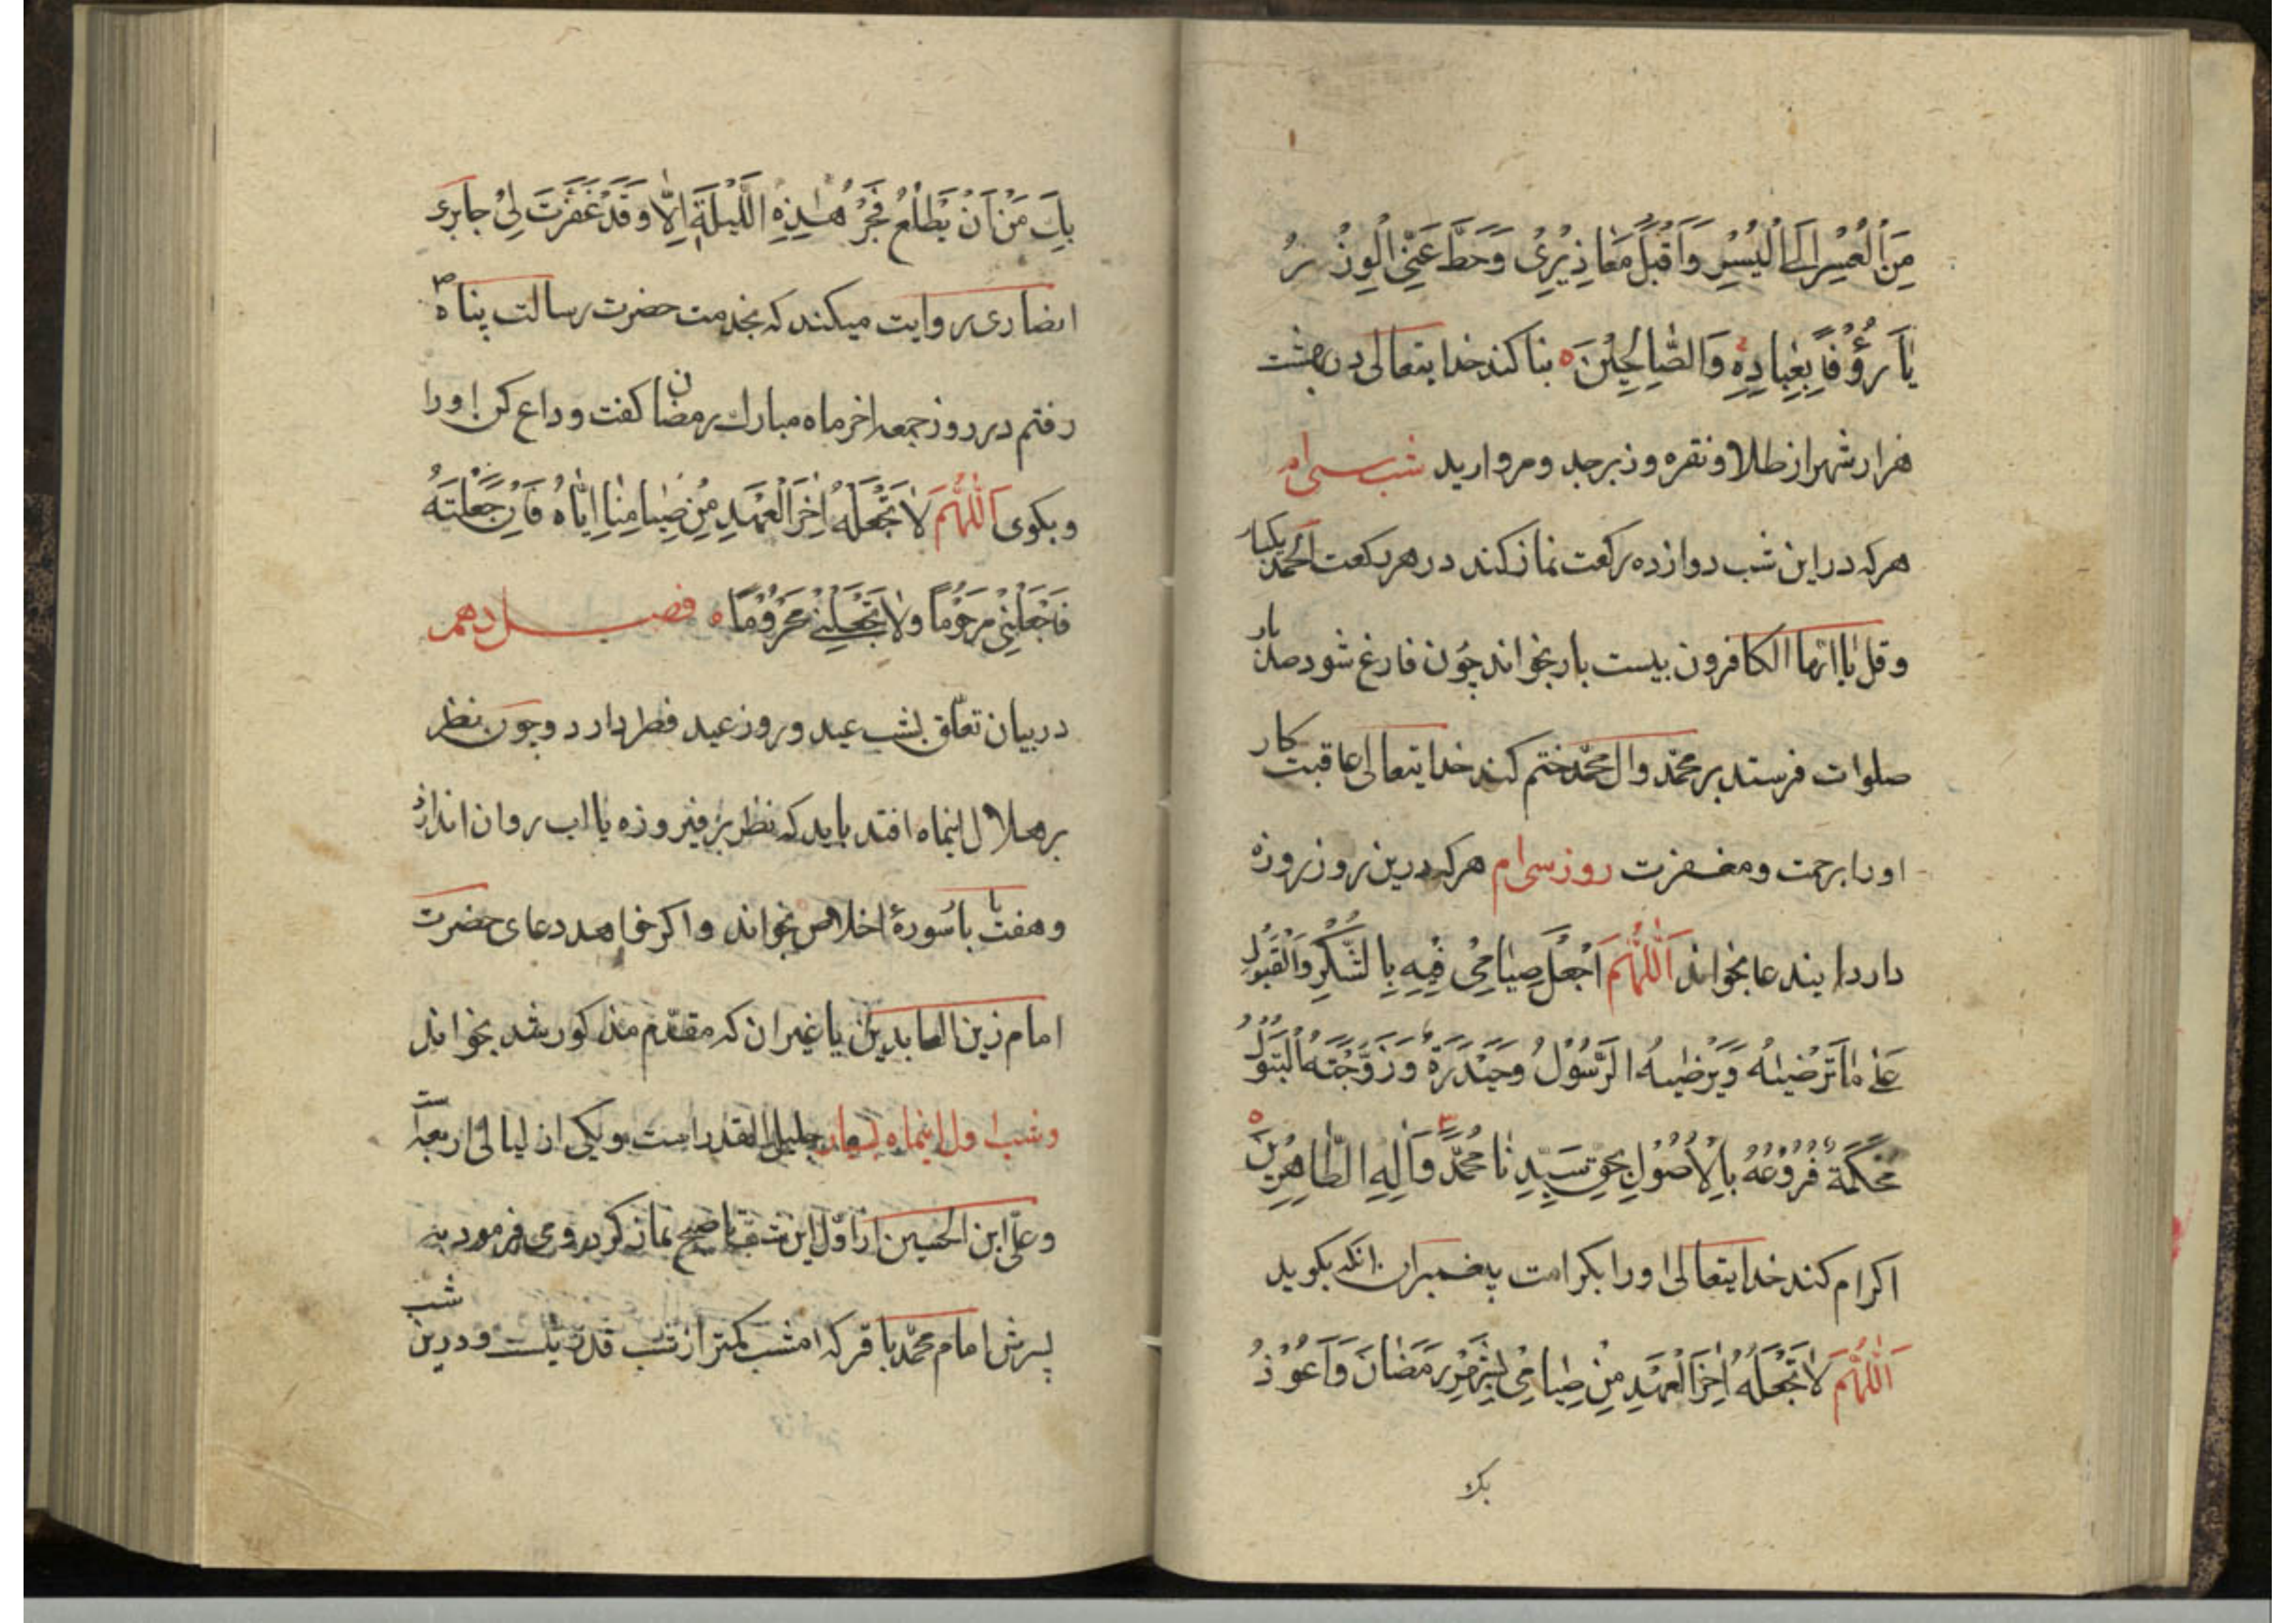 مِنَ الْعُسْرِ اِلَی الْیُسْرِ وَاَقْبِلْ مَعَاذِیْرِیْ وَحَطَّ عَنِّی الْوِزْرُ
یٰا رَؤُفًا بِعِبٰادِهِ وَالصّٰالِحِیْنَ ه بنا کند خدایتعالی در بهشت
هزار شهر از طلا و نقره و زبرجد و مروارید شب سی ام
هرکه در این شب دوازده رکعت نماز کند در هر رکعت الحمد یکبار
و قل یا ایها الکافرون بیست بار بخواند چون فارغ شود صد بار
صلوات فرستد بر محمّد وال محمّد ختم کند خدایتعالی عاقبت کار
اورا برحمت ومغفرت روز سی ام هرکه درین روز روزه
دارد اینددعا بخواند اَللّٰهُمَّ اَجْعَلْ صِیٰامِیْ فِیْهِ بِالشُّکْرِ وَالْقَبُوْلِ
عَلٰی مٰا تَرْضٰیهُ وَیَرْضٰیهُ الرَّسُوْلُ وَحَیْدَرَةُ وَزَوْجَتُهُ الْبَتُوْلُ
مُحْکَمَةً فُرُوْعُهُ بِالْاُصُوْلِ بِحَقِّ سَیِّدِنٰا مُحَمَّدٍ وَاٰلِهِ الطّٰاهِرِیْنَ ه
اکرام کند خدایتعالی اورا بکرامت پیغمبران انکه بکوید
اَللّٰهُمَّ لاٰ تَجْعَلْهُ اٰخِرَ الْعَهْدِ مِنْ صِیٰامِیْ لِشَهْرِ رَمَضٰانَ وَاَعُوْذُ
بك
بِكَ مِنْ اَنْ یَطْلُعَ فَجْرُ هٰذِهِ اللَّیْلَةِ اِلّٰا وَقَدْ غَفَرْتَ لِیْ جابری
انصاری روایت میکند که بخدمت حضرت رسالت پناه ص
رفتم در روز جمعه اخر ماه مبارك رمضان کفت وداع کن اورا
و بکوی اَللّٰهُمَّ لاٰ تَجْعَلْهُ اٰخِرَ الْعَهْدِ مِنْ صِیٰامِنٰا اِیّٰاهُ فَاِنْ جَعَلْتَهُ
فَاجْعَلْنِیْ مَرْحُوْمًا وَلاٰ تَجْعَلْنِیْ مَحْرُوْمًا ه فصل دهم
در بیان تعلّق بشب عید و روز عید فطر دارد و چون نظر
بر هلال اینماه افتد باید که نظر بر فیروزه یا اب روان اندازد
و هفت بار سورهٔ اخلاص بخواند و اکر خواهد دعای حضرت
امام زین العابدین یا غیر ان که مقدّم مذکور شد بخواند
و شب اول اینماه بسیار جلیل القدر است و یکی از لیالی اربعه است
و علی ابن الحسین از اوّل این شب تا صبح نماز کردی و می فرمود به
پسرش امام محمّد باقر که امشب کمتر از شب قدر نیست و درین شب